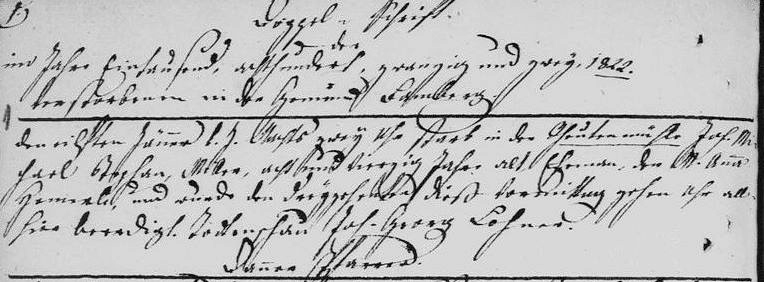 1.) Doppel-Schrift
der
im Jahre Eintausend, achthundert, zwanzig und zwey, 1822.
verstorbenen in der Gemeind Bamberg.
den eilften Jänner l. J. Nachts zwey Uhr starb in der Joh. Mi-
chael Stephan, Müller, acht und vierzig Jahre alt, Eheman der M. Anna
und wurde den dreyzehenten dieß Vormittag zehen Uhr all-
hier beerdigt. Todtenschau Joh. Georg Lohner.
Danner Pfarrer.